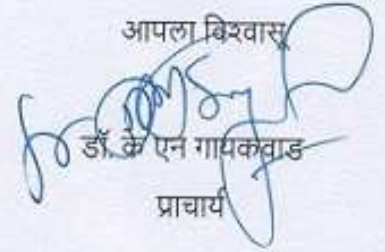 आपला विश्वासू
डॉ. के एन गायकवाड
प्राचार्य